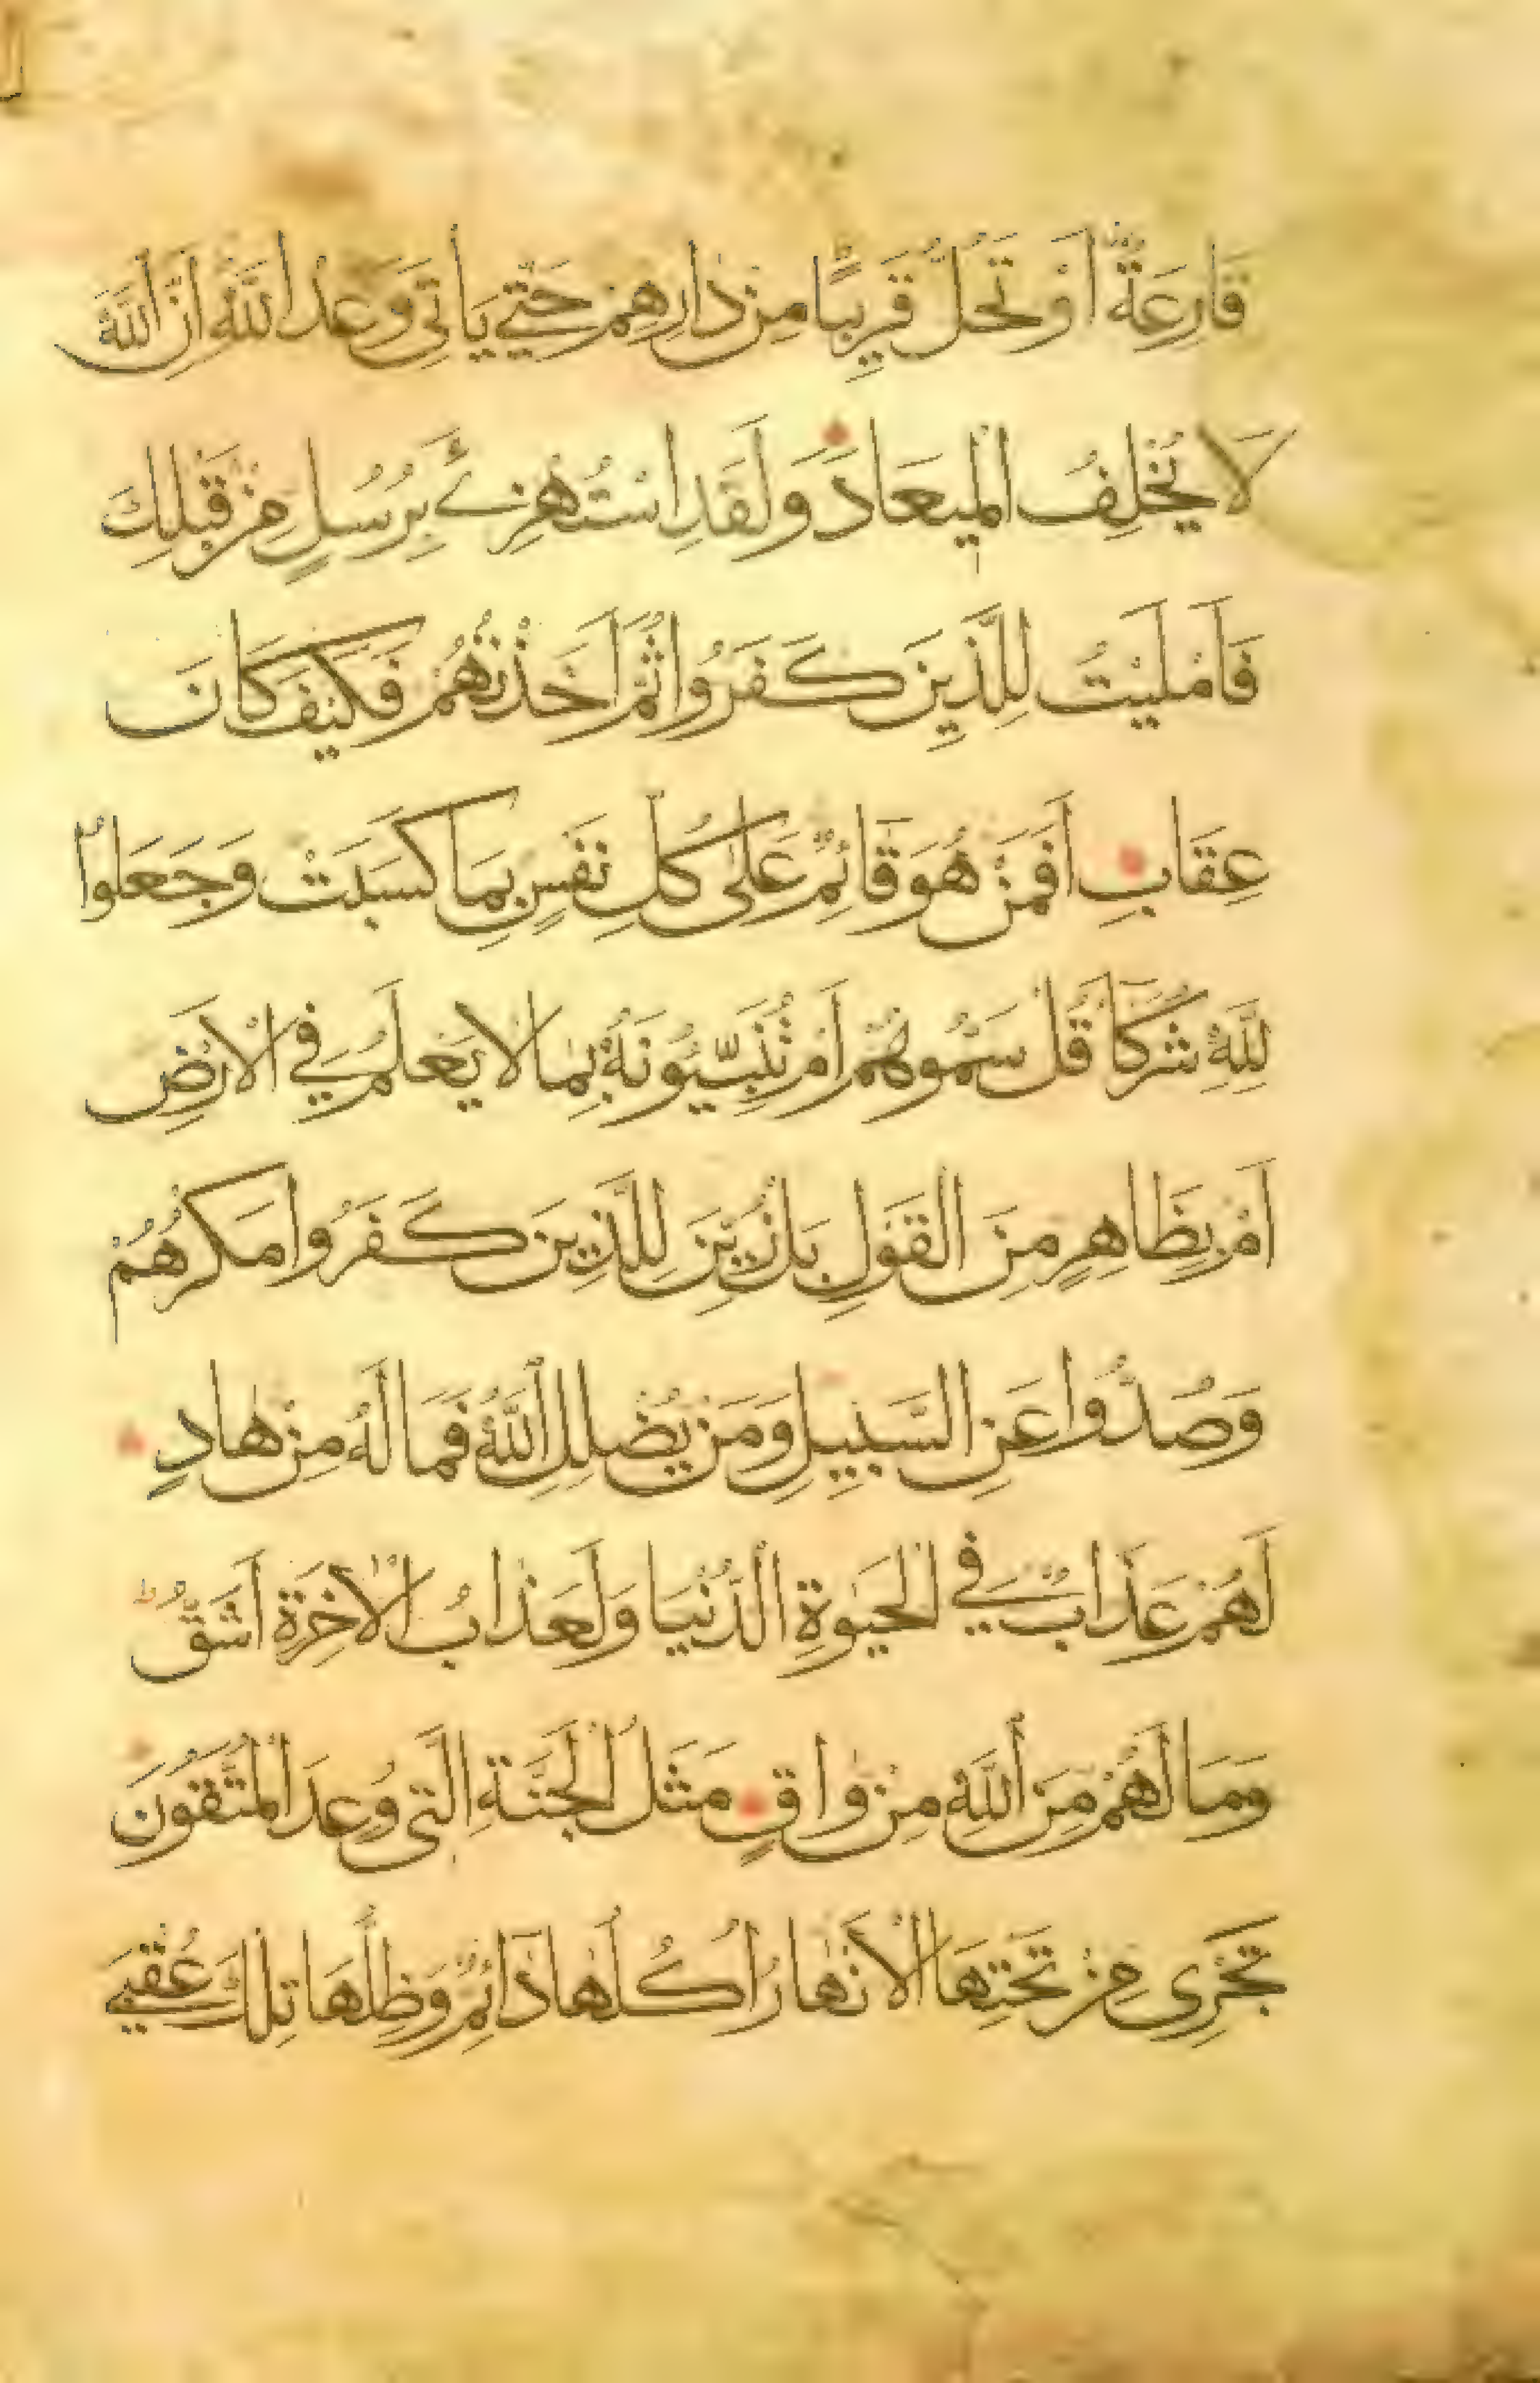 قَارِعَةٌ اَوْ تَحُلُّ قَرِيبًا مِنْ دَارِهِمْ حَتّٰي يَأتِيَ وَعْدُ اللّٰهِ اِنَّ اللّٰهَ
لَا يُخْلِفُ الْمِيعَادَ وَلَقَدِ اسْتُهْزِئَ بِرُسُلٍ مِنْ قَبْلِكَ
فَاَمْلَيْتُ لِلَّذِينَ كَفَرُوا ثُمَّ اَخَذْتُهُمْ فَكَيْفَ كَانَ
عِقَابِ اَفَمَنْ هُوَ قَائِمٌ عَلٰى كُلِّ نَفْسٍ بِمَا كَسَبَتْ وَجَعَلُوا
لِلّٰهِ شُرَكَآ قُلْ سَمُّوهُمْ اَمْ تُنَبِّئُونَهُ بِمَا لَا يَعْلَمُ فِي الْاَرْضِ
اَمْ بِظَاهِرٍ مِنَ الْقَوْلِ بَلْ زُيِّنَ لِلَّذِينَ كَفَرُوا مَكْرُهُمْ
وَصُدُّوا عَنِ السَّبِيلِ وَمَنْ يُضْلِلِ اللّٰهُ فَمَا لَهُ مِنْ هَادٍ
لَهُمْ عَذَابٌ فِي الْحَيٰوةِ الدُّنْيَا وَلَعَذَابُ الْاٰخِرَةِ اَشَقُّ
وَمَا لَهُمْ مِنَ اللّٰهِ مِنْ وَاقٍ مَثَلُ الْجَنَّةِ الَّتِي وُعِدَ الْمُتَّقُونَ
تَجْرِي مِنْ تَحْتِهَا الْاَنْهَارُ اُكُلُهَا دَآئِمٌ وَظِلُّهَا تِلْكَ عُقْبَي